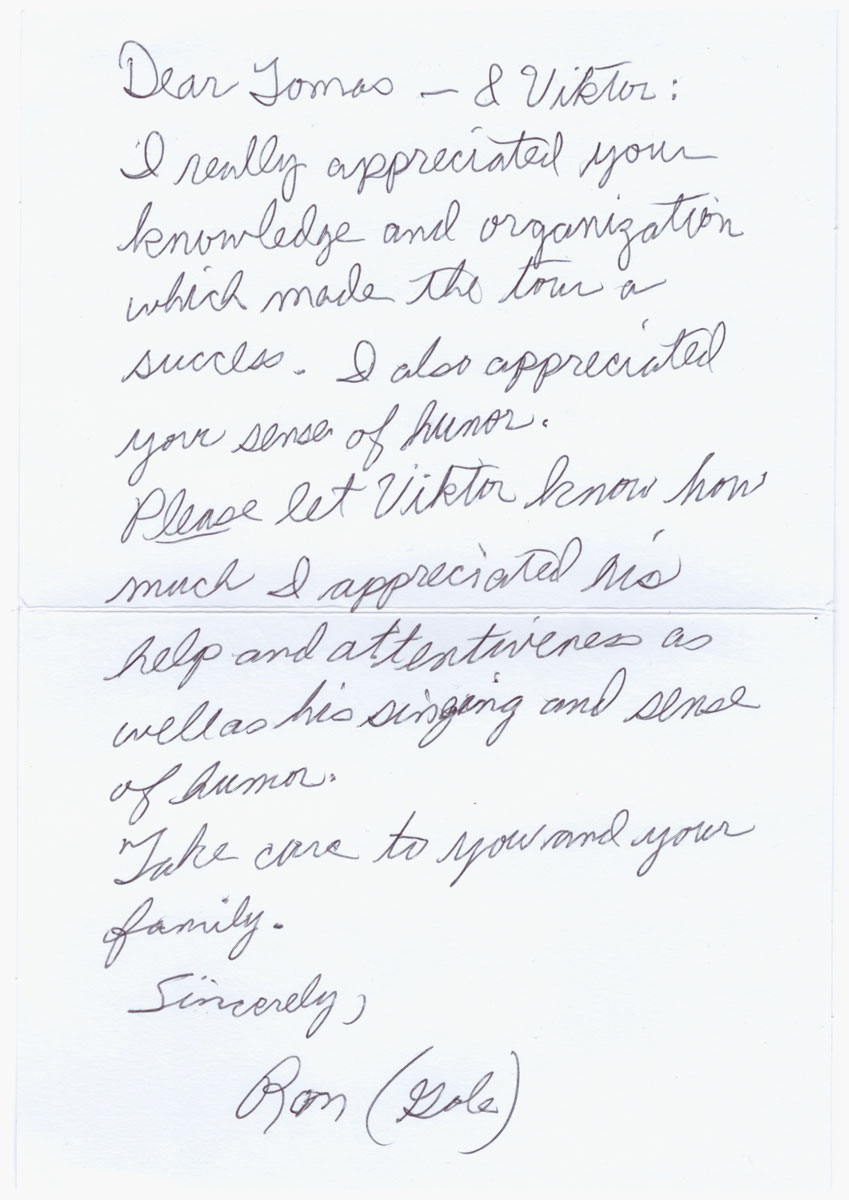 Dear Tomas — & Viktor:
I really appreciated your
knowledge and organization
which made the tour a
success. I also appreciated
your sense of humor.
Please let Viktor know how
much I appreciated his
help and attentiveness as
well as his singing and sense
of humor.
Take care to you and your
family.
Sincerely,
Ron (Gole)